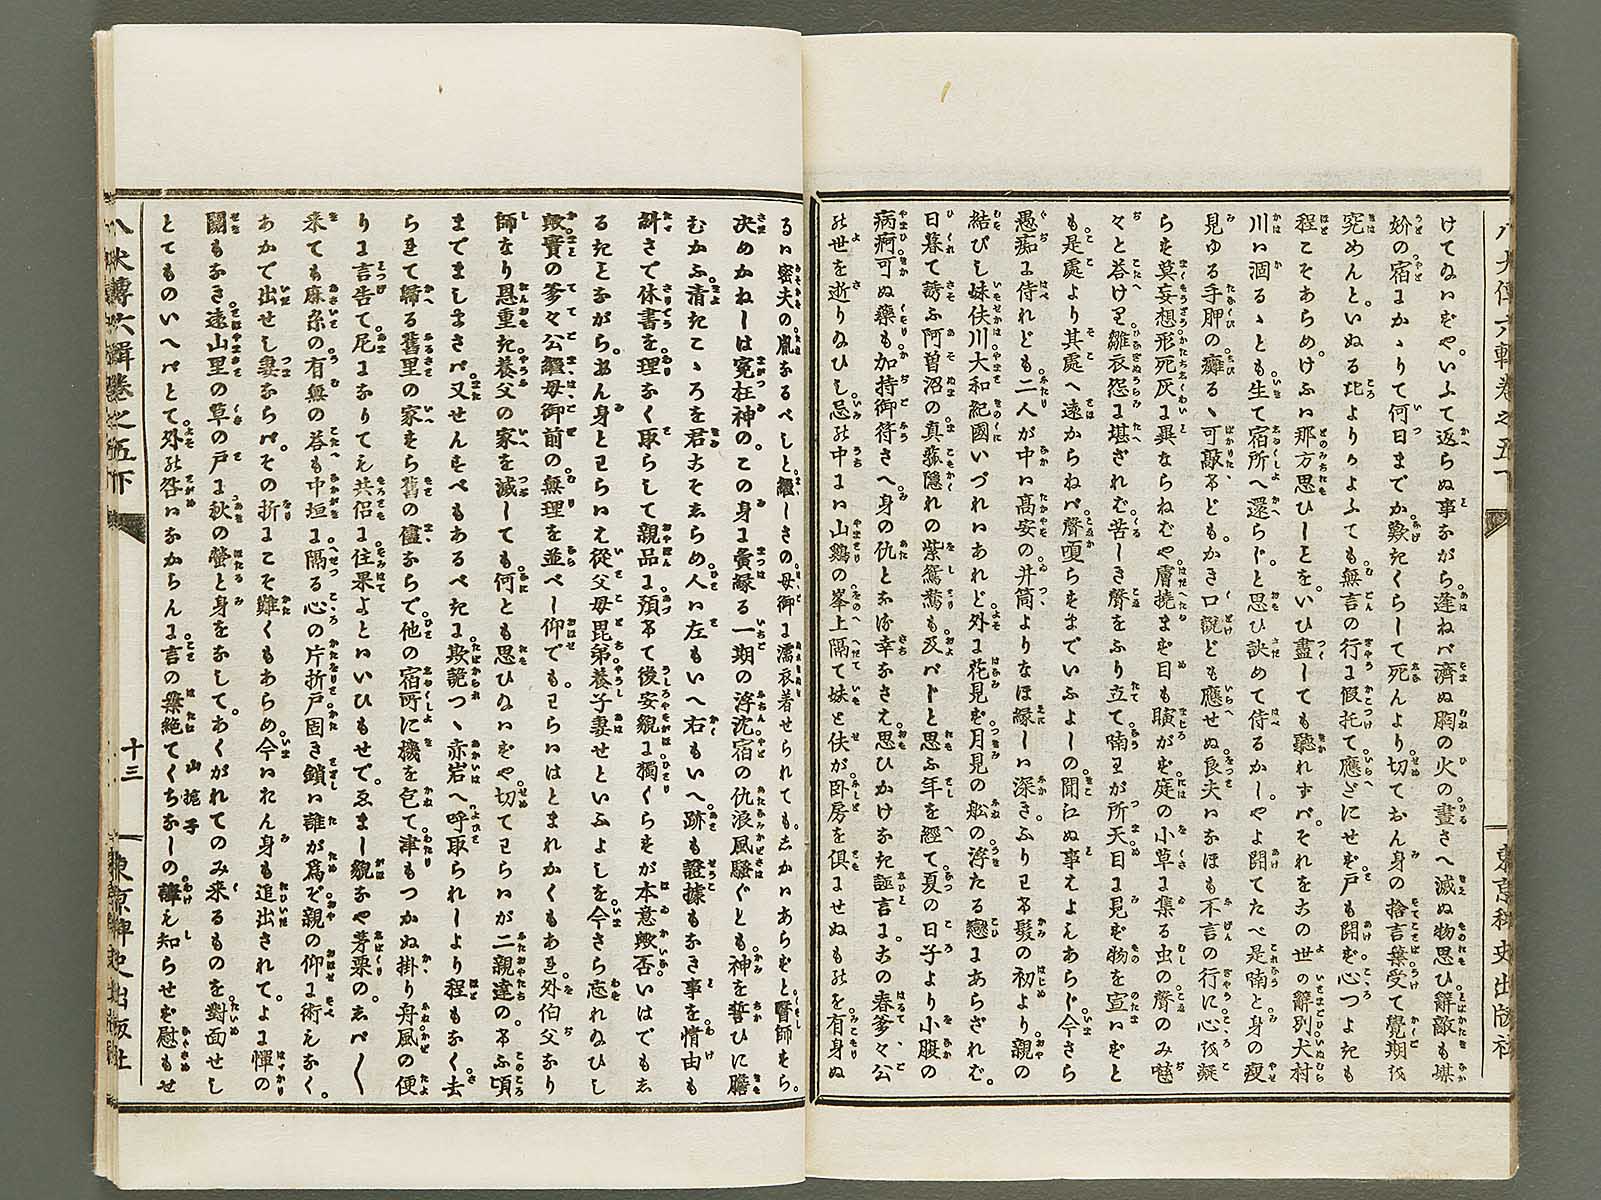 けてゐいぞや。いふて返らぬ事ながら。逢ねバ濟ぬ胸の火の。晝さへ滅ぬ物思ひ。辭敵も媒
妎の。宿にかゝりて何日までか。歎きくらして死んより。切ておん身の捨言葉。受て覺期を
究めんと。いぬる比よりりよふても。無言の行に假托て。應ざにせず。戸も開ず。心つよきも
程こそあらめ。けふハ那方思ひしとを。いひ盡しても聽れずバ。それをこの世の辭別。犬村
川ハ涸るゝとも。生て宿所へ還らじ。と思ひ訣めて侍るかし。やよ開てたべ是喃と。身の瘦
見ゆる手胛の。癪るゝ可敲けども。かき口說ども應せぬ。良夫ハなほも不言の行に。心を凝
らを莫妄想。形死灰に異ならねむや。膚撓まず目も瞚がず。庭の小草に集る虫の。聲のみ囎
々と荅けり。雛衣怨に堪ざれむ。苦しき聲をふり立て。喃わが所天。目に見ず物を宣ハずと
も。是處より其處へ遠からねバ。聲頭らをまでいふよしの。聞江ぬ事えよもあらじ。今さら
愚痴に侍れども。二人が中ハ高安の。井筒よりなほ緣しハ深き。ふりわけ髮の初より。親の
結びし妹伕川。大和紀國いづれハあれど。外に花見ず月見ず。月見の舩の。浮たる戀にあらざれむ。
日暮て誘ふ阿曾沼の。真菰隱れの紫鴛鴦も。及バトと思ふ年を經て。夏の日子より小腹の
病痾。可ぬ藥も加持御符さへ。身の仇とふり幸なさえ。思ひかけなき誣言に。この春爹々公
の世を逝りゐひし。忌の中にハ山鷄の。峯上隔て妹と伕が。卧房を俱にせぬものを。有身ぬ
るハ密夫の。胤なるべしと繼しさの。母御に濡衣着せられても。しかハあらずと醫師すら。
决めかねしハ寃枉神の。この身に黄緣る一期の浮沈。宿の仇浪風騷ぐとも。神を誓ひに膽
むかふ。清きこゝろを君こそえらめ。人ハ左もいへ右もいへ。跡も證據もなき事を。情由も
糾さで休書を。理なく取らして親品に。預けて後安貌に。獨くらをが本意歟否。いはでもえ
るきとながら。おん身とわらハえ從父母毘弟。養子妻せといふよしを。今さら忘れゐひし
歟。實の爹々公繼母御前の。無理を並べし仰でも。わらハはとまれかくもあれ。外伯父なり
師なり恩重き。養父の家を減しても。何とも思ひゐハずや。切てわらハが二親達の。けふ頃
までましまさバ。又せんすべもあるべきに。欺詭つゝ赤岩へ。呼取られしより程もなく。去
られて歸る舊里の。家をら舊の儘ならで。他の宿所に機を乞て。津もつかぬ掛り舟。風の便
りに言告て。尾になりてえ共侶に。住果よとハいひもせで。ゑまし貌なや茅栗の。えバ〱
來ても麻糸の。有無の荅も中垣に。隔る心の片折戸。固き鎖ハ誰が爲ぞ。親の仰に術えなく。
あかで出せし妻ならバ。その折にこそ難くもあらめ。今ハれん身も追出されて。よに憚の
關もなき。遠山里の草の戸に。秋の螢と身をなして。あくがれてのみ來るものを。對面せし
とてものいへバとて。外の咎ハなからんに。言の葉絶てくちなしの。諱え知らせず慰もせ
山梔子
八犬傳六輯卷之五下
十三
東京稗史出版社